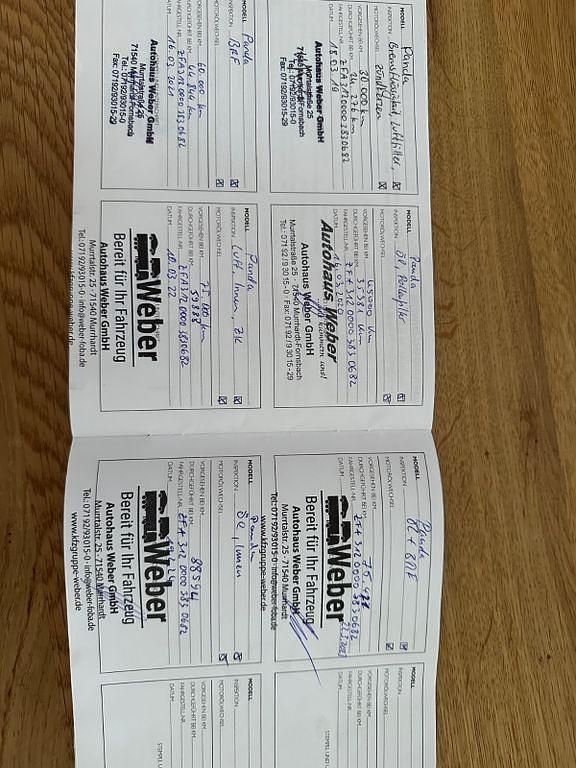 MODELL Panda
INSPEKTION Bremsflüssigkeit, Luftfilter,
MOTORÖLWECHSEL Zündkerzen
VORGESEHEN BEI KM 30.000 km
DURCHGEFÜHRT BEI KM
FAHRGESTELL-NR. ZFA3120000J830682
DATUM 18.03.19
Autohaus Weber GmbH
Murrtalstraße 25
71540 Murrhardt-Fornsbach
Tel.: 07192/93015-0
Fax: 07192/93015-29
MODELL Panda
INSPEKTION Öl, Pollenfilter
MOTORÖLWECHSEL
VORGESEHEN BEI KM 45000 km
DURCHGEFÜHRT BEI KM
FAHRGESTELL-NR. ZFA3120000J830682
DATUM
Autohaus Weber
Autohaus Weber GmbH
Murrtalstraße 25 · 71540 Murrhardt-Fornsbach
Tel.: 07192/93015-0 · Fax: 07192/93015-29
MODELL Panda
INSPEKTION ÖL + BRF
MOTORÖLWECHSEL
VORGESEHEN BEI KM
DURCHGEFÜHRT BEI KM
FAHRGESTELL-NR. ZFA3120000J830682
DATUM
Weber
Bereit für Ihr Fahrzeug
Autohaus Weber GmbH
Murrtalstr. 25 · 71540 Murrhardt
Tel.: 07192/93015-0 · info@weber-foba.de
www.kfzgruppe-weber.de
MODELL
INSPEKTION
MOTORÖLWECHSEL
VORGESEHEN BEI KM
DURCHGEFÜHRT BEI KM
FAHRGESTELL-NR.
DATUM
STEMPEL UND
MODELL Panda
INSPEKTION BRF
MOTORÖLWECHSEL
VORGESEHEN BEI KM 60.000 km
DURCHGEFÜHRT BEI KM 44.844 km
FAHRGESTELL-NR. ZFA3120000J830682
DATUM 16.03.2021
Autohaus Weber GmbH
Murrtalstraße 25
71540 Murrhardt-Fornsbach
Tel.: 07192/93015-0
Fax: 07192/93015-29
MODELL Panda
INSPEKTION Luft, Innen, ZK
MOTORÖLWECHSEL
VORGESEHEN BEI KM 75.000 km
DURCHGEFÜHRT BEI KM 59888
FAHRGESTELL-NR. ZFA3120000J830682
DATUM 10.03.22
Weber
Bereit für Ihr Fahrzeug
Autohaus Weber GmbH
Murrtalstr. 25 · 71540 Murrhardt
Tel.: 07192/93015-0 · info@weber-foba.de
MODELL Panda
INSPEKTION Öl, Innen
MOTORÖLWECHSEL
VORGESEHEN BEI KM
DURCHGEFÜHRT BEI KM 88524
FAHRGESTELL-NR. ZFA3120000J830682
DATUM
Weber
Bereit für Ihr Fahrzeug
Autohaus Weber GmbH
Murrtalstr. 25 · 71540 Murrhardt
Tel.: 07192/93015-0 · info@weber-foba.de
www.kfzgruppe-weber.de
MODELL
INSPEKTION
MOTORÖLWECHSEL
VORGESEHEN BEI KM
DURCHGEFÜHRT BEI KM
FAHRGESTELL-NR.
DATUM
STEMPEL U